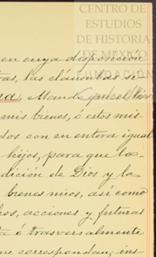 CENTRO DE
ESTUDIOS
DE HISTORIA
DE MEXICO
en cuya disposicion
tas, las cláusulas se
mis bienes, á estos mis
dos con su entera igual
hijos, para que la
dicion de Dios y la
bienes mios, así como
ros, acciones y futuras
ta ó trasversalmente
me correspondan, ins